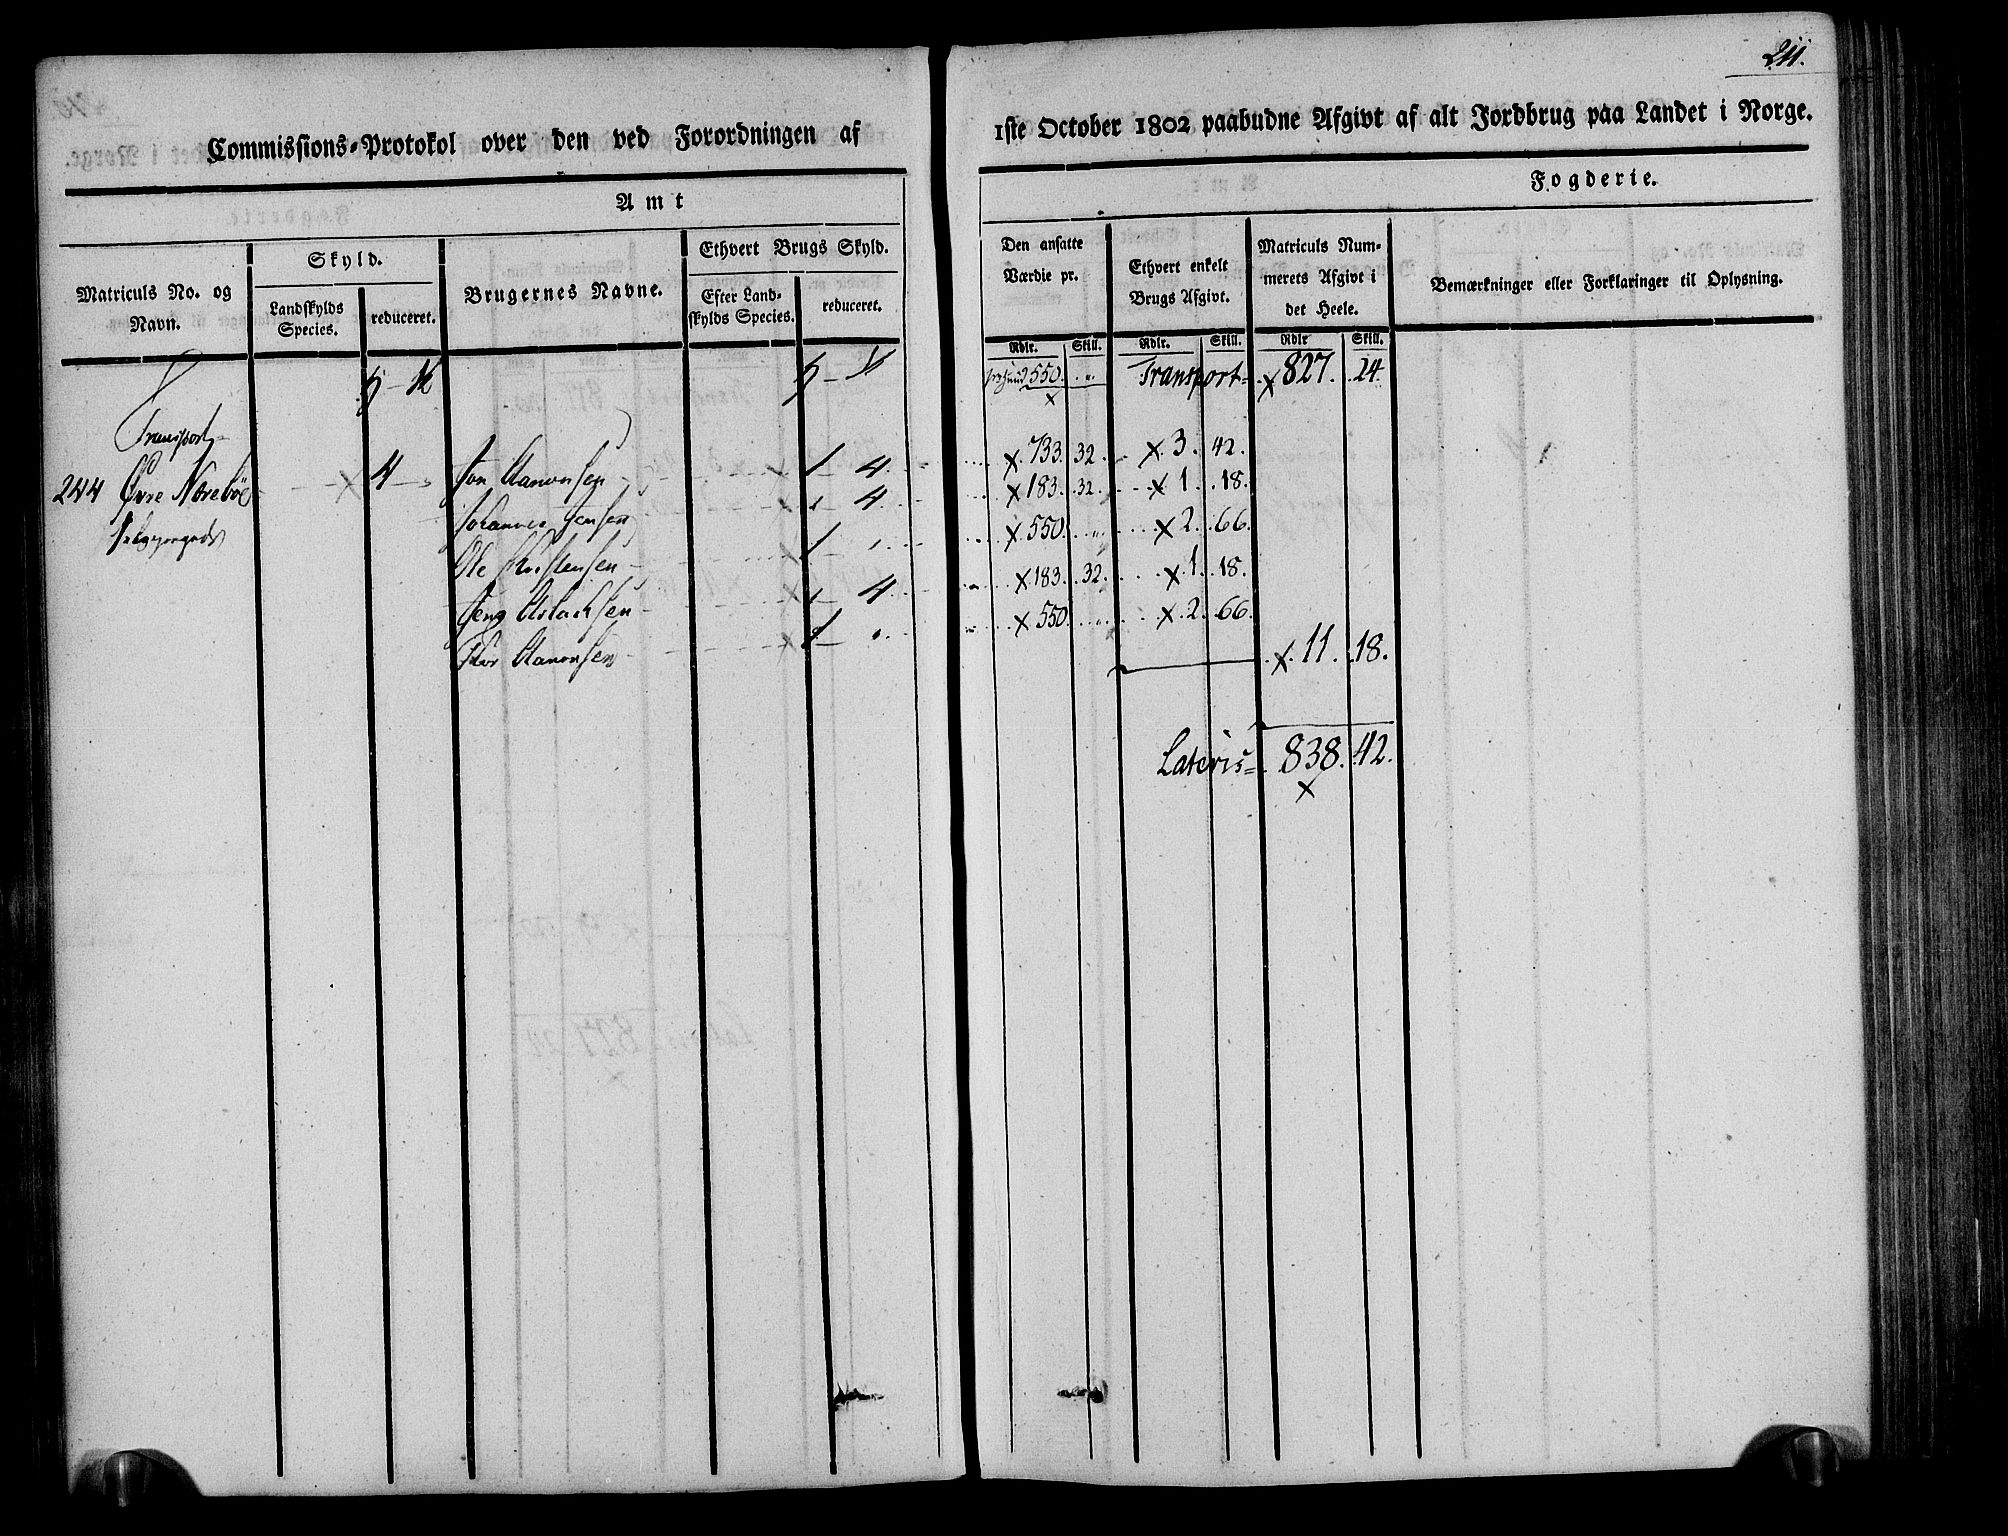 211.
Commissions-Protokol over den ved Forordningen af
1ste October 1802 paabudne Afgivt af alt Jordbrug paa Landet i Norge.
Amt
Fogderie.
Matriculs No. og Navn.
Skyld.
Landskylds Species.
reduceret.
Brugernes Navne.
Ethvert Brugs Skyld.
Efter Landskylds Species.
reduceret.
Den ansatte Værdie pr.
Ethvert enkelt Brugs Afgivt.
Matriculs Nummerets Afgivt i det Heele.
Bemærkninger eller Forklaringer til Oplysning.
Rdlr. Skill. Rdlr. Skill. Rdlr Skill.
550. Transport x 827. 24.
Transport
244 Øvre Norebøe x 4
Jon Aanonsen 1 4. x 733. 32. x 3. 42.
Johannes Jensen 4. x 183. 32. x 1. 18.
Ole Christensen 1 x 550. x 2. 66.
Jens Aslachsen 4 x 183. 32. x 1. 18.
Thor Aanonsen x 550. x 2. 66.
x 11. 18.
Lateris 838. 42.
x